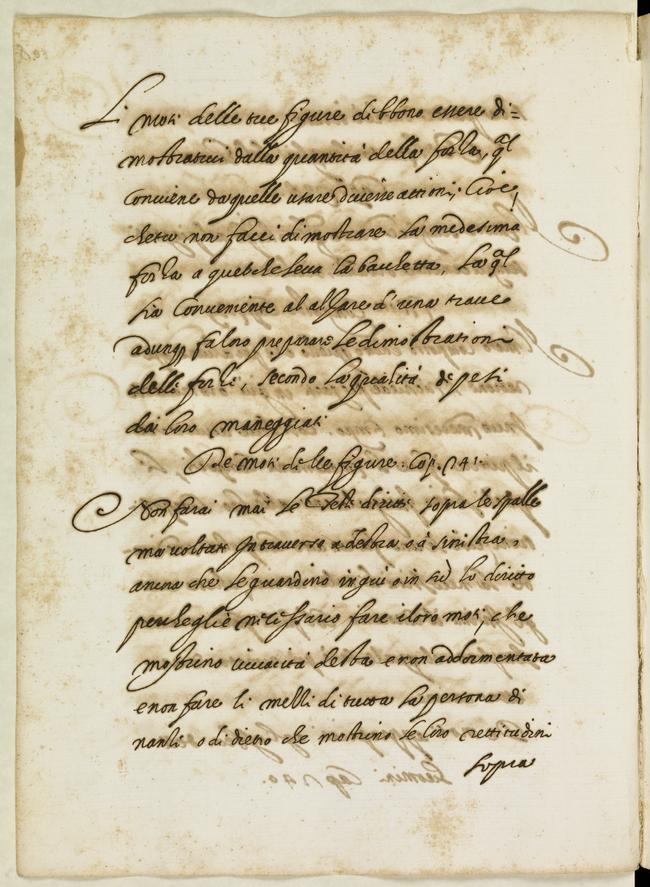 Li moti delle tue figure debbono essere di=
mostratiui dalla quantità della forza, ql
Conuiene da quelle usare diuerse attioni; Cioe,
che tu non facci dimostrare La medesima
forza a quel che leua la bachetta, La ql
sia Conueniente al alzare d'una traue
adunq fa loro preparare Le dimostrationi
delli forzi, secondo La qualità de pesi
da loro maneggiati
De moti delle figure. Cap. 141.
Non farai mai Le teste diritte sopra le spalle
ma voltate In trauerso a destra o à sinistra,
ancora che Se guardino in giù o in sù Lo diritto
perche gl'è necissario fare i loro moti, che
mostrino viuacità desta e non addormentata
e non fare li mezzi di tutta La persona di
nanzi o di dietro che mostrino le loro rettitudini
sopra